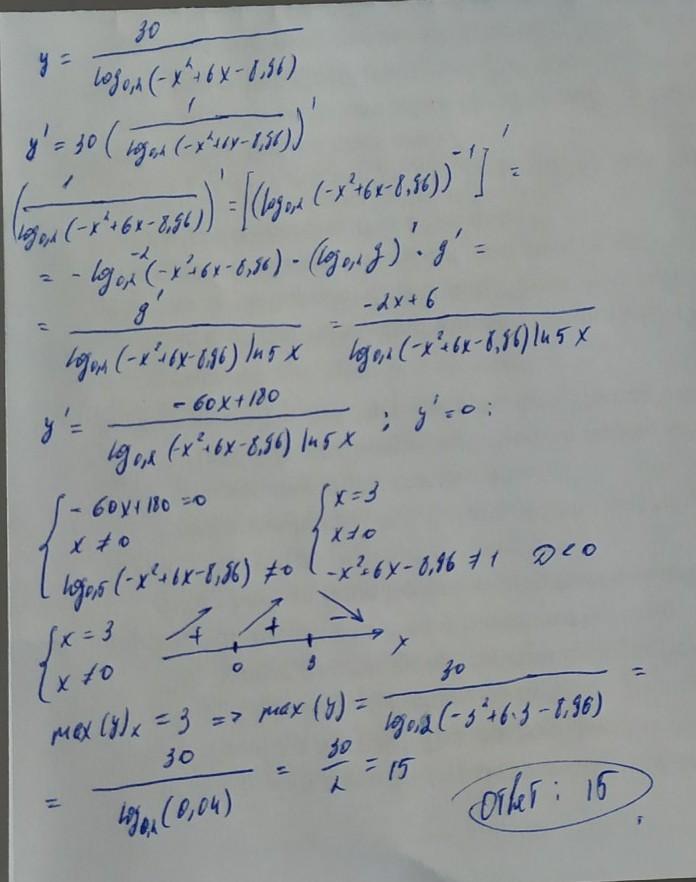 y = 30 / log₀,₂(-x²+6x-8,96)
y' = 30 ( 1 / log₀,₂(-x²+6x-8,96) )'
( 1 / log₀,₂(-x²+6x-8,96) )' = [(log₀,₂(-x²+6x-8,96))⁻¹]' =
= - log₀,₂⁻²(-x²+6x-8,96) · (log₀,₂ g)' · g' =
= g' / log₀,₂(-x²+6x-8,96) ln5 x = -2x+6 / log₀,₂(-x²+6x-8,96) ln5 x
y' = -60x+180 / log₀,₂(-x²+6x-8,96) ln5 x ; y' = 0 :
{ -60x+180=0 { x=3
x ≠ 0 x ≠ 0
log₀,₅(-x²+6x-8,96) ≠ 0 -x²+6x-8,96 ≠ 1 D<0
{ x = 3 + + - x
x ≠ 0 0 3
max(y)ₓ = 3 => max(y) = 30 / log₀,₂(-3²+6·3-8,96) =
= 30 / log₀,₂(0,04) = 30/2 = 15
Ответ: 15